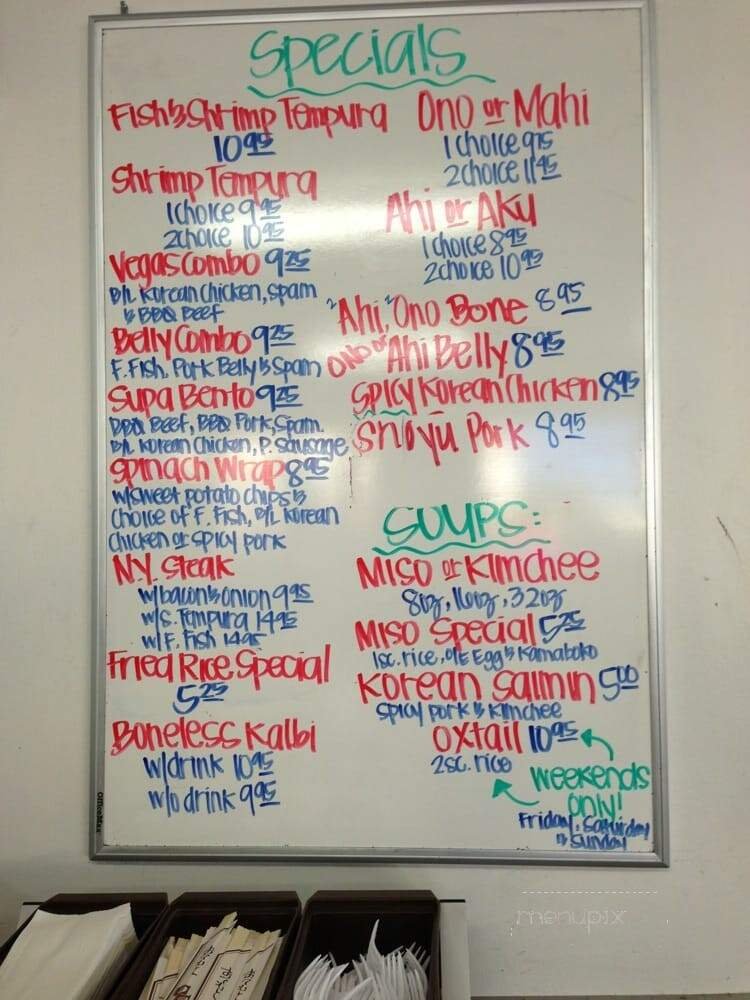 Specials
Fish & Shrimp Tempura
10 95
Shrimp Tempura
1 choice 9 95
2 choice 10 95
Vegas Combo 9 25
B/L Korean Chicken, Spam
& BBQ Beef
Belly Combo 9 25
F. Fish, Pork Belly & Spam
Supa Bento 9 25
BBQ Beef, BBQ Pork, Spam
B/L Korean Chicken, P. Sausage
Spinach Wrap 8 95
w/sweet potato chips &
Choice of F. Fish, B/L Korean
Chicken or Spicy pork
N.Y. Steak
w/bacon & onion 9 95
w/S. Tempura 14 95
w/ F. Fish 14 95
Fried Rice Special
5 25
Boneless Kalbi
w/drink 10 95
w/o drink 9 95
Ono or Mahi
1 choice 9 75
2 choice 11 45
Ahi or Aku
1 choice 8 95
2 choice 10 95
"Ahi," Ono Bone 8 95
Ono or Ahi Belly 8 95
Spicy Korean Chicken 8 95
Shoyu Pork 8 95
Soups:
Miso or Kimchee
8oz, 16oz, 32oz
Miso Special 5 25
1sc. rice, O/E Egg & Kamaboko
Korean Saimin 5 00
Spicy pork & Kimchee
Oxtail 10 95
2sc. rice
Weekends
Only!
Friday, Saturday
& Sunday
OfficeMax
menupix